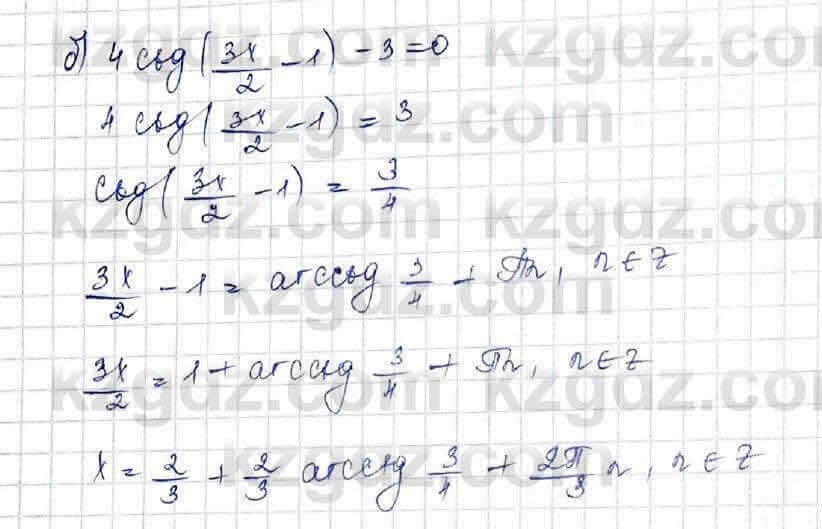 б) 4 ctg(3x/2 - 1) - 3 = 0
4 ctg(3x/2 - 1) = 3
ctg(3x/2 - 1) = 3/4
3x/2 - 1 = arcctg 3/4 + πn, n ∈ Z
3x/2 = 1 + arcctg 3/4 + πn, n ∈ Z
x = 2/3 + 2/3 arcctg 3/4 + 2π/3 n, n ∈ Z
kzgdz.com kzgdz.com
kzgdz.com
kzgdz.com kzgdz.com
kzgdz.com
kzgdz.com kzgdz.com
kzgdz.com